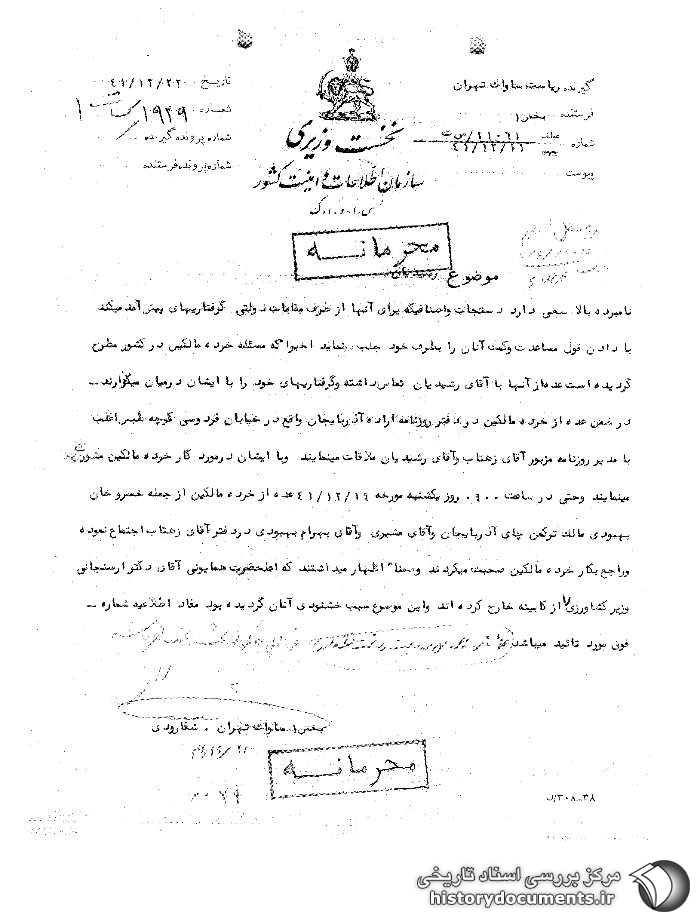 گیرنده ریاست ساواک تهران
فرستنده بخش ۱
شماره
پیوست
تاریخ ۴۱/۱۲/۲۲
شماره ۱۹۴۹
شماره پرونده گیرنده
شماره پرونده فرستنده
نخست وزیری
سازمان اطلاعات و امنیت کشور
س.ا.و.ا.ک
محرمانه
موضوع رشیدیان
نامبرده بالا سعی دارد دستجات و اصنافیکه برای آنها از طرف مقامات دولتی گرفتاریهای پیش آمد میکند
با دادن قول مساعدت و کمک آنان را بطرف خود جلب نماید اخیرا که مسئله خرده مالکین در کشور مطرح
گردیده است عده‌از آنها با آقای رشیدیان تماس داشته و گرفتاریهای خود را با ایشان در میان میگذارند ــ
در ضمن عده از خرده مالکین در دفتر روزنامه اراده آذربایجان واقع در خیابان فردوسی کوچه اغلب
با مدیر روزنامه مزبور آقای زهتاب و آقای رشیدیان ملاقات مینمایند و با ایشان در مورد کار خرده مالکین مشورت
مینمایند و حتی در ساعت ۰۹۰۰ روز یکشنبه مورخه ۴۱/۱۲/۱۹ عده از خرده مالکین از جمله خسرو خان
بهبودی مالک ترکمن چای آذربایجان و آقای مشیری و آقای بهرام بهبودی در دفتر آقای زهتاب اجتماع نموده
و راجع بکار خرده مالکین صحبت میکردند و ضمنا" اظهار میداشتند که اعلیحضرت همایونی آقای دکتر ارسنجانی
وزیر کشاورزی را از کابینه خارج کرده اند و این موضوع سبب خشنودی آنان گردیده بود مفاد اطلاعیه شماره ــ
فوق مورد تائید میباشد
بخش ۱ ساواک تهران .
محرمانه
۳۰۸ــ۳۸
مرکز بررسی اسناد تاریخی
historydocuments.ir